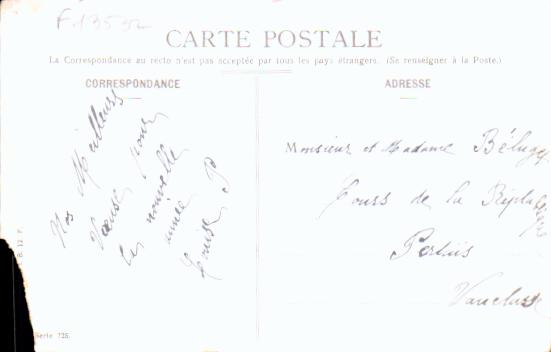 F.13532
CARTE POSTALE
La Correspondance au recto n'est pas acceptée par tous les pays étrangers. (Se renseigner à la Poste.)
CORRESPONDANCE
ADRESSE
Nos Meilleurs
Vœux pour
la nouvelle
année
Louise P
Monsieur et Madame
Cours de la République
Pertuis
Vaucluse
B. 12 F.
Serie 725.